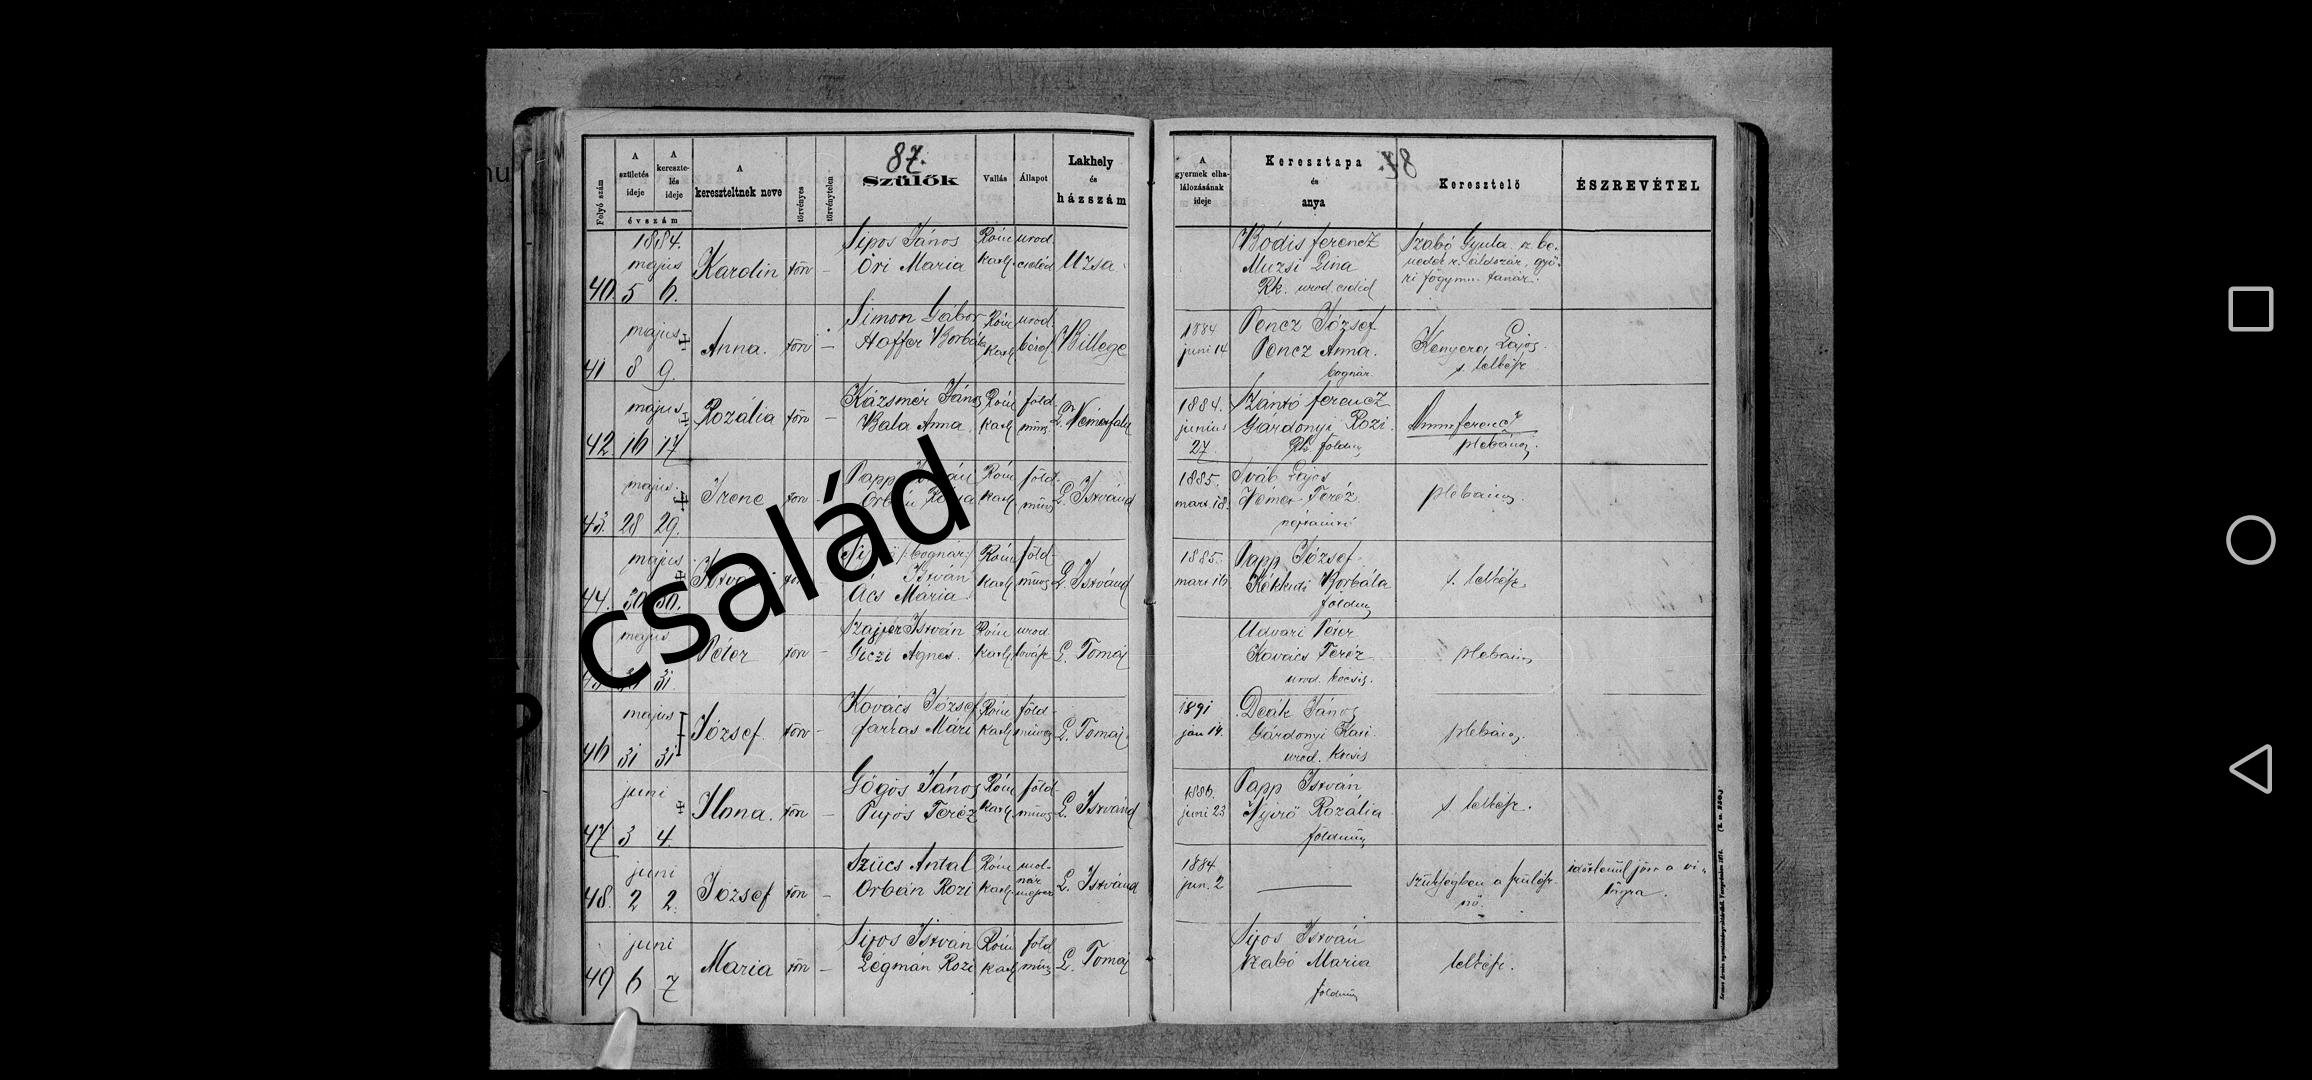 87.
Folyó szám
A születés ideje
A keresztelés ideje
évszám
A kereszteltnek neve
törvényes
törvénytelen
Szülők
Vallás
Állapot
Lakhely és házszám
A gyermek elhalálozásának ideje
Keresztapa és anya
Keresztelő
ÉSZREVÉTEL
40 1884. május 5 6. Karolin törv – Sipos János
Őri Maria Róm kath urod. cseléd Uzsa
Bódis ferencz
Muzsi Lina
Rk. urod. cseléd
Szabó Gyula
41 május 8 9. Anna. törv – Simon Gábor
Hoffer Borbála Róm kath urod. béres Billege
1884 juni 14
Pencz József
Pencz Anna.
bognár
Kenyeres Lajos
s. lelkész
42 május 16 17 Rozália törv – Kázsmér János
Bala Anna Róm kath föld műv L. Németfalu
1884. junius 27
Szántó ferencz
Gárdonyi Rozi
Rk. földm
ferencz
plebános
43 május 28 29. Irene törv Papp
Orbán Róm kath föld műv L. Istvánd
1885. mart. 18.
Sváb Lajos
Német Teréz
plebános
44. május 30 30. István
bognár
István
Ács Mária Róm kath föld műves L. Istvánd
1885. mart 16
Papp József
Kékkuti Borbála
földm
s. lelkész
május 31. Péter törv – Szajfer István
Giczi Agnes. Róm kath urod. L. Tomaj
Udvari Péter
Kovács Teréz
urod. kocsis.
plebános
46 május 31 31 József törv – Kovács József
farkas Mári Róm kath föld műves L. Tomaj
1891 jan 14.
Deák János
Gárdonyi Kati
urod. kocsis
plebános
47 juni 3 4. Ilona. törv – Gögös János
Pupos Teréz Róm kath föld műves L. Istvánd
1886. juni 23
Papp István
Nyirő Rozália
földmüv
s. lelkész.
48. juni 2 2. József törv – Szücs Antal
Orbán Rozi Róm kath molnár L. Istvánd
1884 jun. 2
szükségben a szülésznő
időtlenül jött a világra.
49 juni 6 7 Maria törv – Sipos István
Légmán Rozi Róm kath föld műv L. Tomaj
Sipos István
Szabó Maria
földmüv
lelkész.
család